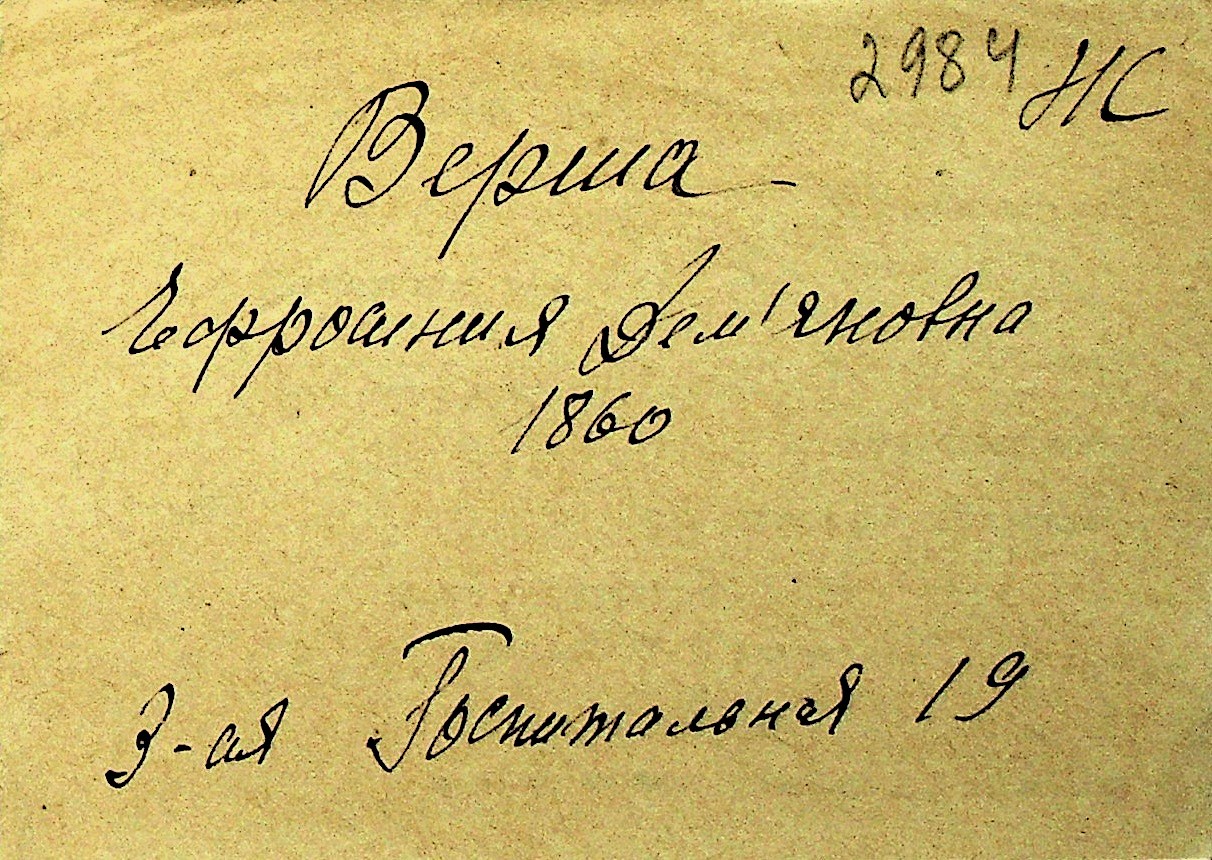 2984 НС
Верша
Ефрошния Дем'яновна
1860
3-ая Госпитальная 19